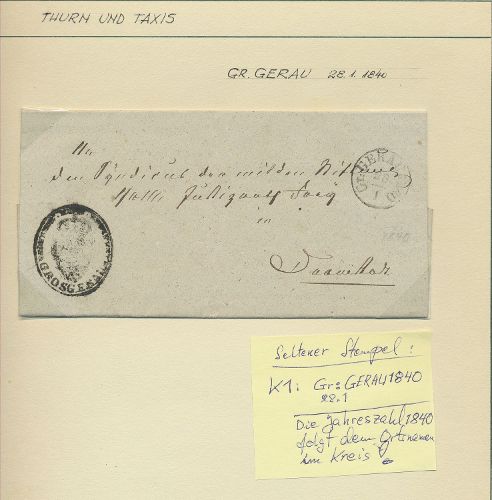 THURN UND TAXIS
GR. GERAU 28.1.1840
An
den Syndicus der milden
in
Darmstadt
GR:GERAU 1840
28
1
1840
GROSGERAU
Seltener Stempel:
K1: Gr:GERAU 1840
28.1
Die Jahreszahl 1840
folgt dem Ortsnamen
im Kreis!